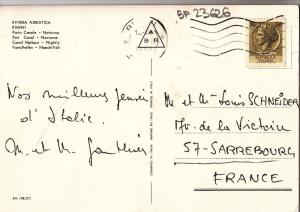 RIVIERA ADRIATICA
RIMINI
Porto Canale - Notturno
Port Canal - Nocturne
Canal Harbour - Nightly
Kanalhafen - Nachtlich
BP 23626
Nos meilleures pensées
d'Italie.
M. et M. Gauthier
M et M Louis SCHNEIDER
Av. de la Victoire
57-SARREBOURG
FRANCE